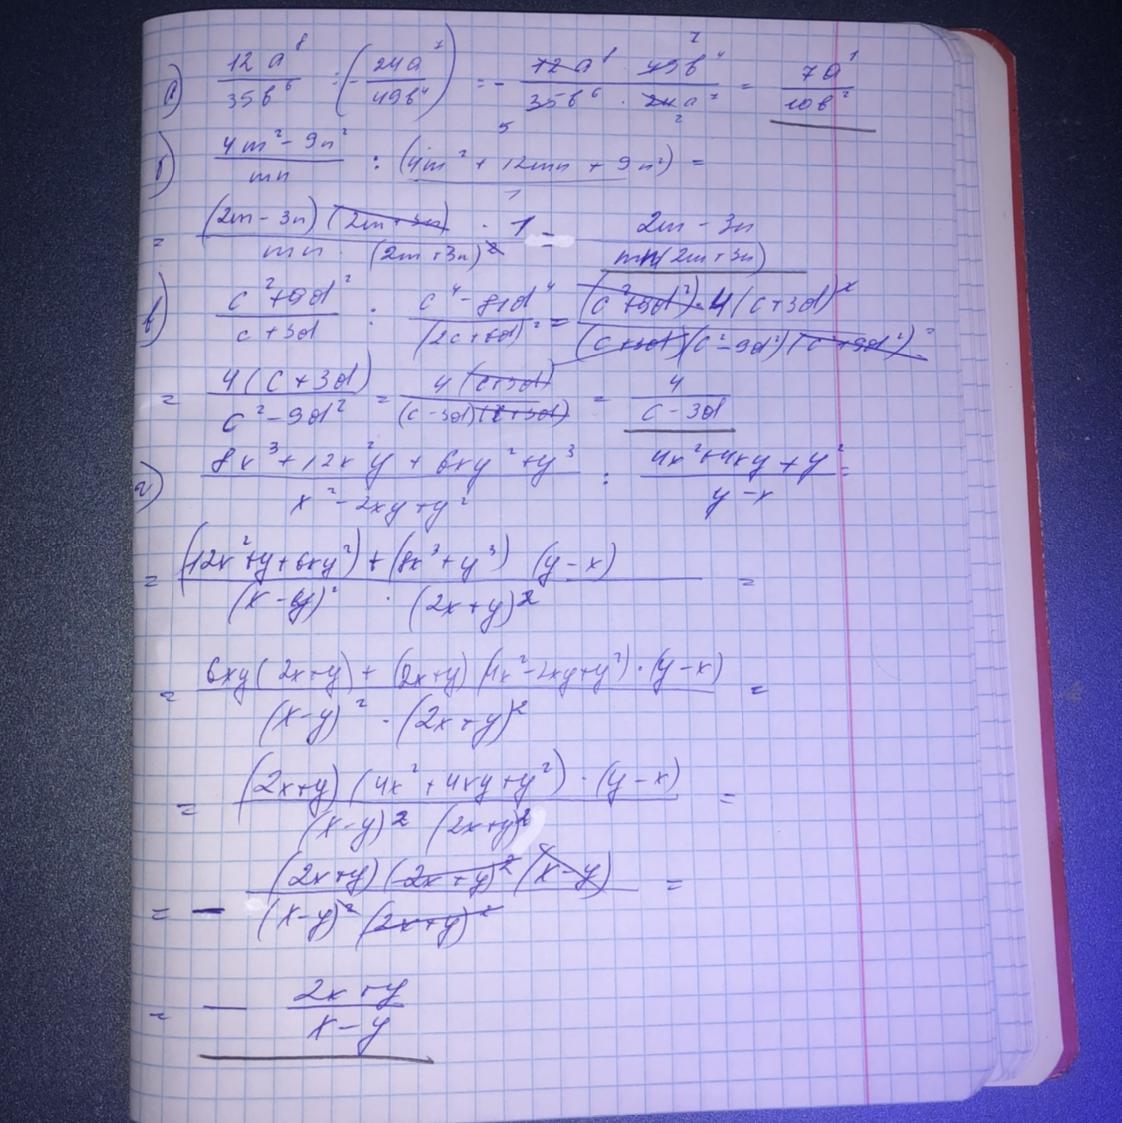 а) 12a⁸/35b⁶ : (-24a⁷/49b⁴) = - 12a⁸ · 49b⁴/35b⁶ · 24a⁷ = 7a¹/10b²
б) 4m² - 9n²/mn : (4m² + 12mn + 9n²)/1 =
= (2m - 3n)(2m + 3n) · 1/mn · (2m + 3n)² = 2m - 3n/mn(2m + 3n)
в) c² + 9d²/c + 3d : c⁴ - 81d⁴/(2c + 6d)² = (c² + 9d²) · 4(c + 3d)²/(c + 3d)(c² - 9d²)(c² + 9d²)
= 4(c + 3d)/c² - 9d² = 4(c + 3d)/(c - 3d)(c + 3d) = 4/c - 3d
г) 8x³ + 12x²y + 6xy² + y³/x² - 2xy + y² : 4x² + 4xy + y²/y - x =
= (12x² + y + 6xy²) + (8x³ + y³) (y - x)/(x - y)² · (2x + y)² =
= 6xy(2x + y) + (2x + y)(4x² - 2xy + y²) · (y - x)/(x - y)² · (2x + y)² =
= (2x + y)(4x² + 4xy + y²) · (y - x)/(x - y)² (2x + y)² =
= - (2x + y)(2x + y)²(x - y)/(x - y)²(2x + y)² =
= - 2x + y/x - y